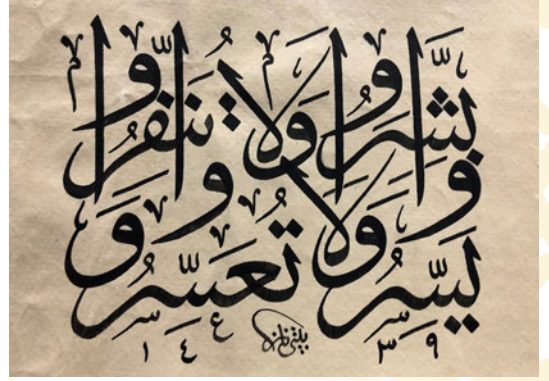 يَسِّرُوا وَلَا تُعَسِّرُوا
وَبَشِّرُوا وَلَا تُنَفِّرُوا
١٤٣٩